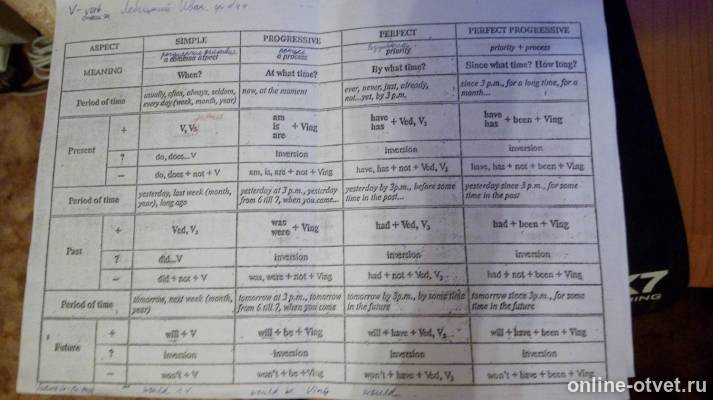 V - verb
ASPECT SIMPLE PROGRESSIVE PERFECT PERFECT PROGRESSIVE
MEANING a common aspect a process priority priority + process
When? At what time? By what time? Since what time? How long?
Period of time usually, often, always, seldom, every day (week, month, year) now, at the moment ever, never, just, already, not...yet, by 3 p.m. since 3 p.m., for a long time, for a month...
Present + V, Vs am is are + Ving have has + Ved, V3 have has + been + Ving
? do, does...V inversion inversion inversion
− do, does + not + V am, is, are + not + Ving have, has + not + Ved, V3 have, has + not + been + Ving
Period of time yesterday, last week (month, year), long ago yesterday at 3 p.m., yesterday from 6 till 7, when you came... yesterday by 3p.m., before some time in the past... yesterday since 3 p.m., for some time in the past
Past + Ved, V2 was were + Ving had + Ved, V3 had + been + Ving
? did...V inversion inversion inversion
− did + not + V was, were + not + Ving had + not + Ved, V3 had + not + been + Ving
Period of time tomorrow, next week (month, year) tomorrow at 3 p.m., tomorrow from 6 till 7, when you come tomorrow by 3p.m., by some time in the future tomorrow since 3p.m., for some time in the future
Future + will + V will + be + Ving will + have + Ved, V3 will + have + been + Ving
? inversion inversion inversion inversion
− won't + V won't + be + Ving won't + have + Ved, V3 won't + have + been + Ving
would + V would be Ving would
X7
online-otvet.ru